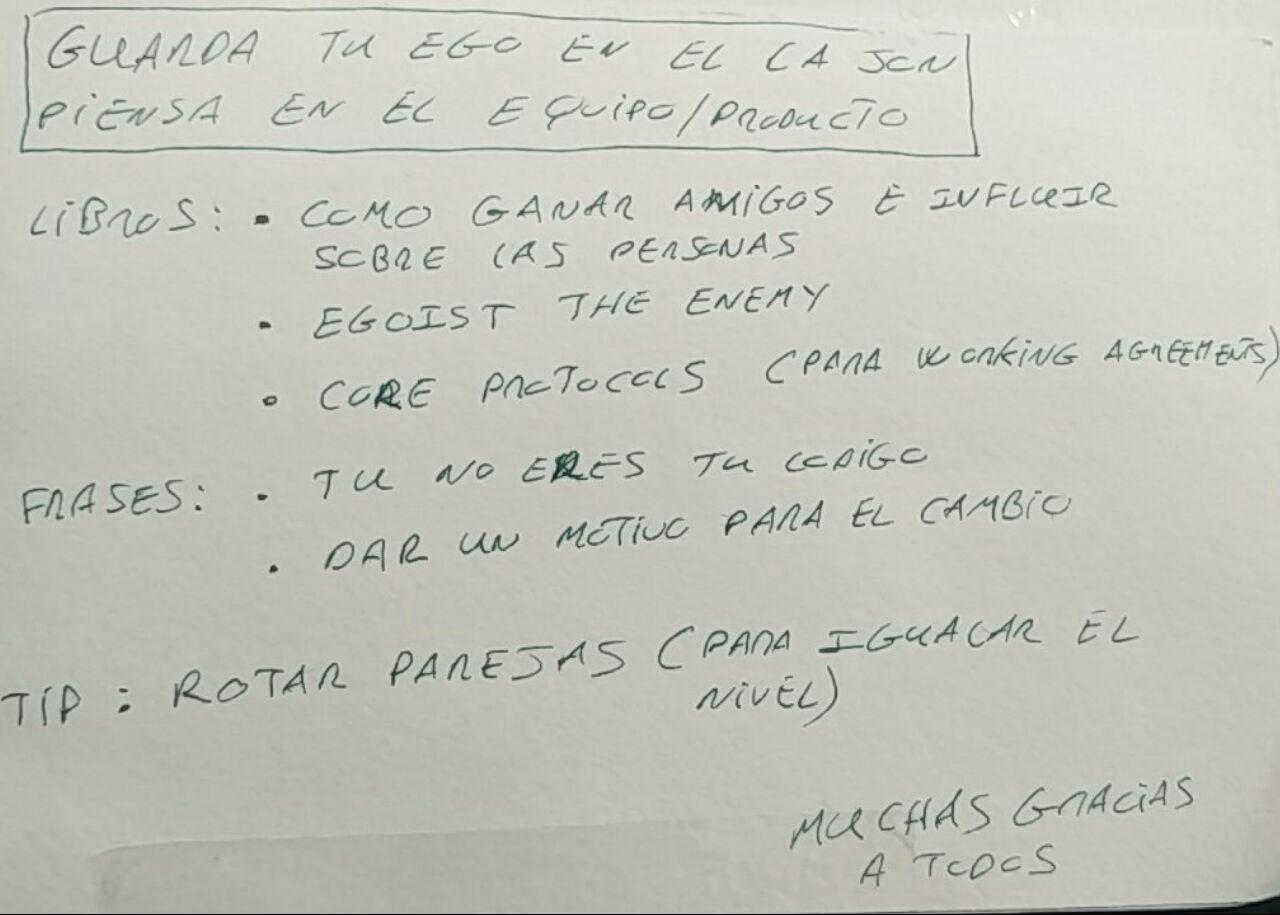 GUARDA TU EGO EN EL CAJON
PIENSA EN EL EQUIPO/PRODUCTO
LIBROS: • COMO GANAR AMIGOS E INFLUIR
SOBRE LAS PERSONAS
• EGOIST THE ENEMY
• CORE PROTOCOLS (PARA WORKING AGREEMENTS)
FRASES: • TU NO ERES TU CODIGO
• DAR UN MOTIVO PARA EL CAMBIO
TIP: ROTAR PAREJAS (PARA IGUALAR EL
NIVEL)
MUCHAS GRACIAS
A TODOS